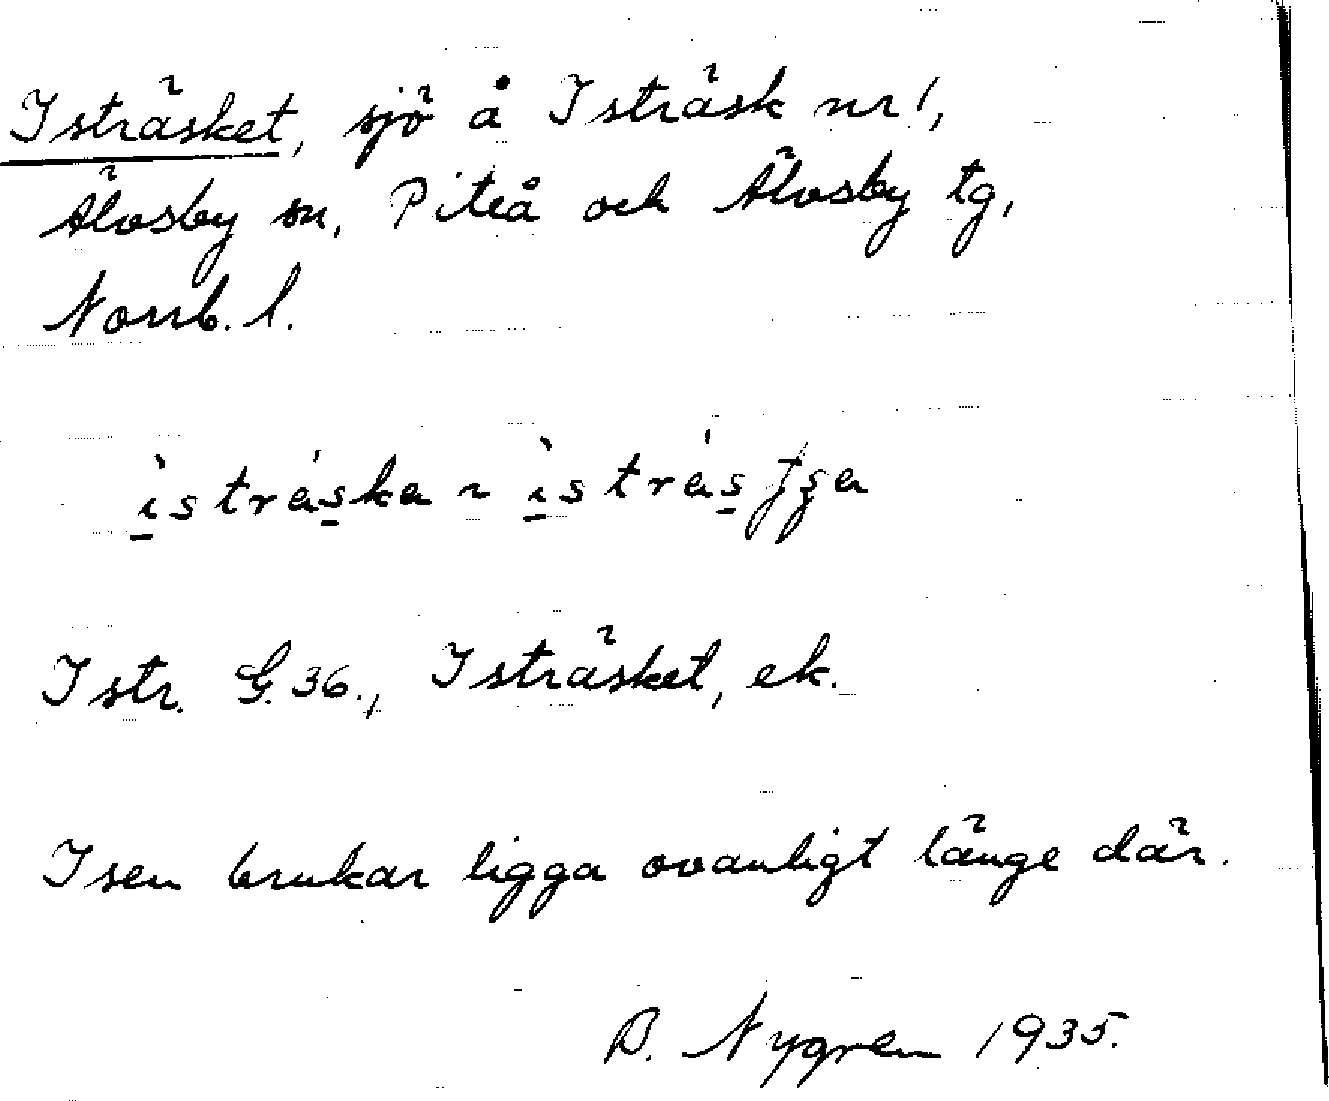 Isträsket, sjö å Isträsk nr 1,
Älvsby sn, Piteå och Älvsby tg,
Norrb. l.
Istr. G. 36., Isträsket, ek.
Isen brukar ligga ovanligt länge där.
B. Nygren 1935.